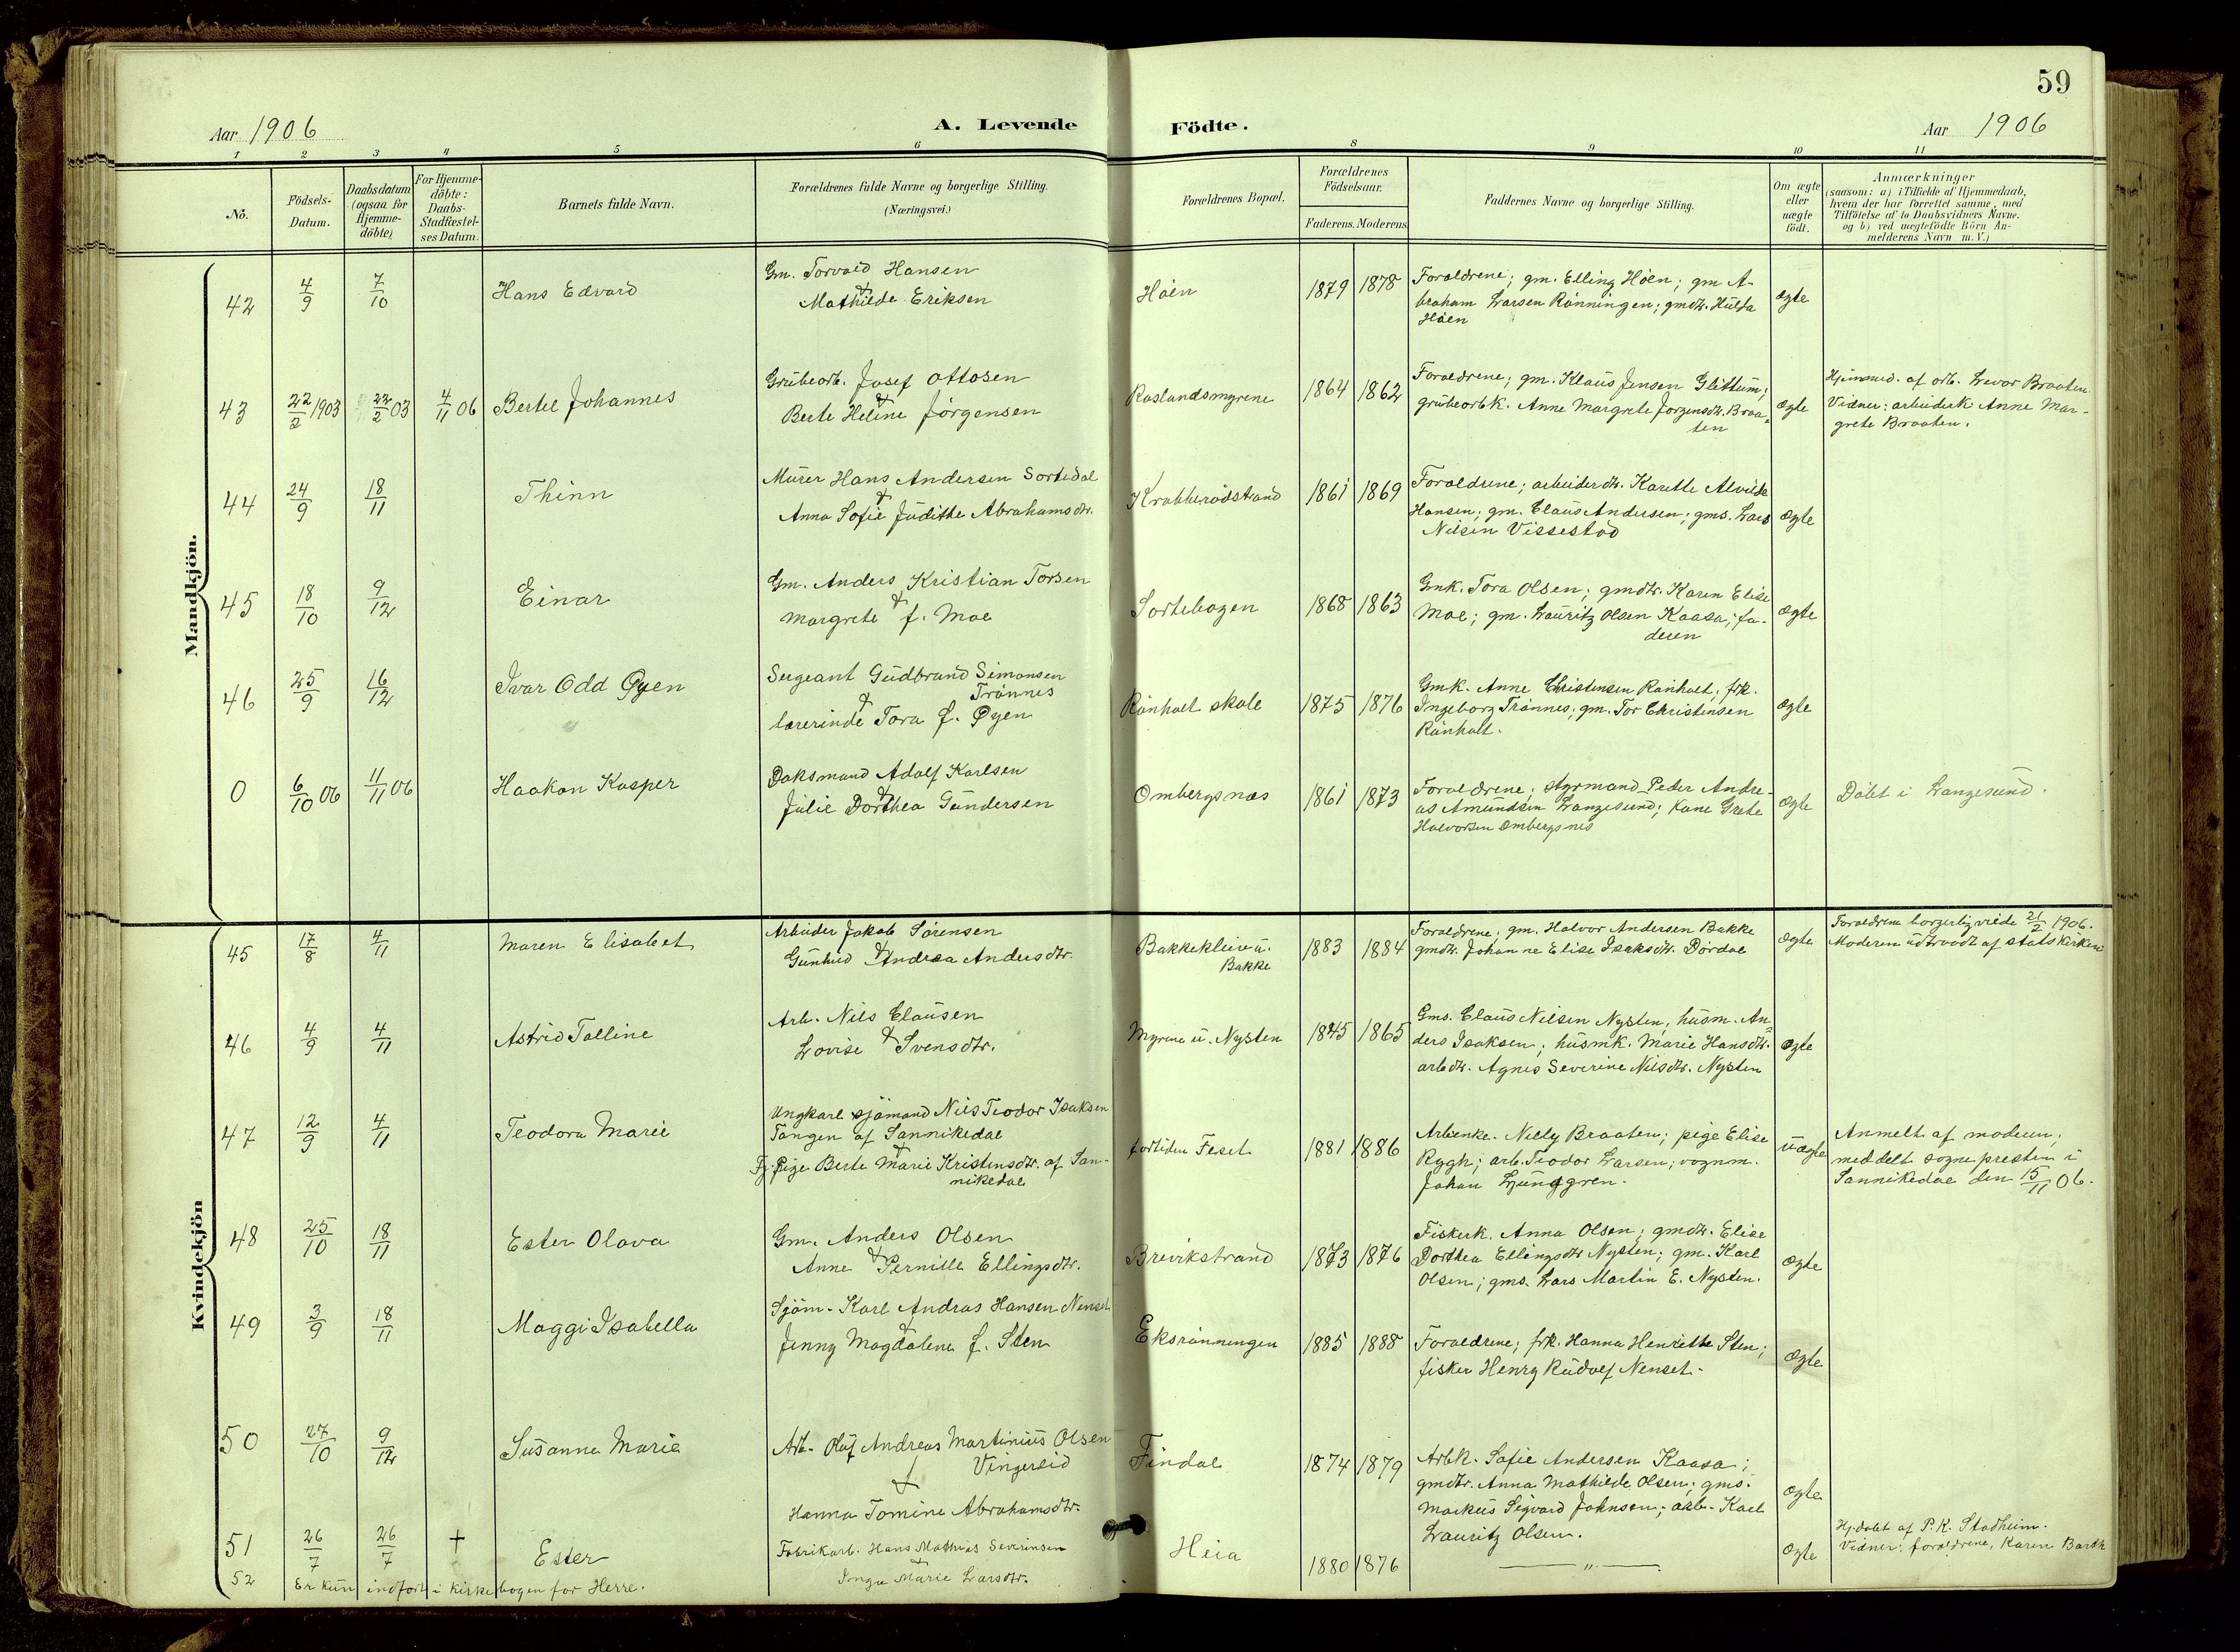 59
Aar 1906
A. Levende
Födte.
Aar 1906
1 2 3 4 5 6 8 9 10 11
No.
Födsels-
Datum.
Daabsdatum
(ogsaa for
Hjemme-
döbte)
For Hjemme-
döbte:
Daabs-
Stadfæstel-
ses Datum.
Barnets fulde Navn.
Forældrenes fulde Navne og borgerlige Stilling.
(Næringsvei.)
Forældrenes Bopæl.
Forældrenes
Födselsaar.
Faderens. Moderens.
Faddernes Navne og borgerlige Stilling.
Om ægte
eller
uægte
födt.
Anmærkninger
(saasom: a) i Tilfælde af Hjemmedaab,
hvem der har forrettet samme, med
Tilföielse af to Daabsvidners Navne.
og b) ved uægtefödte Börn An-
melderens Navn m. V.)
Mandkjön.
42 4/9 7/10 Hans Edvard
Gm. Torvald Hansen
&
Mathilde Eriksen
Höen 1879 1878
Foraldrene; gm. Elling Höen; gm A-
braham Larsen Rönningen; gmdtr. Hulda
Höen
ægte
43 22/2 1903 22/2 03 4/11 06 Bertel Johannes
Grubearb. Josef Ottosen
&
Berte Heline Jörgensen
Raslandsmyrene 1864 1862
Foraldrene; gm. Klaus Jensen Glittum;
grubearbk. Anne Margrete Jorgensdtr. Braa-
ten
ægte
Hjemmed. af arb. Levor Braaten
Vidner: arbeiderk Anne Mar-
grete Braaten.
44 24/9 18/11 Thinn
Murer Hans Andersen Sortedal
&
Anna Sofie Judithe Abrahamsdtr.
Krabberödstrand 1861 1869
Foraldrene; arbeiderdtr. Karethe Alvilde
Hansen; gm. Claus Andersen; gms. Lars
Nilsen Vissestad
ægte
45 18/10 9/12 Einar
Gm. Anders Kristian Torsen
&
Margrete f. Moe
Sortebogen 1868 1863
Gmk. Tora Olsen; gmdtr. Karen Elise
Moe; gm. Lauritz Olsen Kaasa; fa-
deren
ægte
46 25/9 16/12 Ivar Odd Øyen
Sergeant Gudbrand Simonsen
Trönnes
&
lærerinde Tora f. Øyen
Rönholt skole 1875 1876
Gmk. Anne Christensen Rönholt; frk.
Ingeborg Trönnes; gm. Tor Christensen
Rönholt.
ægte
0 6/10 06 11/11 06 Haakon Kasper
Doksmand Adolf Karlsen
&
Julie Dorthea Gundersen
Ombergsnæs 1861 1873
Foraldrene; styrmand Peder Andre-
as Amundsen Langesund; kone Grete
Halvorsen Ombergsnes
ægte
Döbt i Langesund.
Kvindekjön
45 17/8 4/11 Maren Elisabet
Arbeider Jakob Sörensen
&
Gunhild Andrea Andersdtr.
Bakkekleiva u.
Bakke
1883 1884
Foraldrene; gm. Halvor Andersen Bakke
gmdtr. Johanne Elise Isaksdtr. Dördal
ægte
Foraldrene borgerlig viede 21/2 1906.
Moderen udtraadt af statskirken
46 4/9 4/11 Astrid Talline
Arb. Nils Clausen
&
Lovise Svensdtr.
Myrene u. Nysten 1845 1865
Gms. Claus Nilsen Nysten; husm. An-
ders Isaksen; husmk. Marie Hansdtr.
arbdtr. Agnes Severine Nilsdtr. Nysten
ægte
47 12/9 4/11 Teodora Marie
Ungkarl sjömand Nils Teodor Isaksen
Tangen af Sannikedal
&
Fg. Pige Berte Marie Kristensdtr. af San-
nikedal
fortiden Feset 1881 1886
Arbenke. Nelly Braaten; pige Elise
Rygh; arb. Teodor Larsen; vognm.
Johan Ljunggren.
uægte
Anmelt af moderen;
meddelt sognepresten i
Sannikedal den 15/11 06.
48 25/10 18/11 Ester Olava
Gm. Anders Olsen
&
Anne Pernille Ellingsdtr.
Brevikstrand 1873 1876
Fiskerk. Anna Olsen; gmdtr. Elise
Dorthea Ellingsdtr Nysten; gm. Karl
Olsen; gms. Lars Martin E. Nysten.
ægte
49 3/9 18/11 Maggi Isabella
Sjöm. Karl Andras Hansen Nenset
&
Jenny Magdalena f. Sten
Eksrönningen 1885 1888
Foraldrene; frk. Hanna Henriette Sten;
fisker Henry Rudolf Nenset.
ægte
50 27/10 9/12 Susanna Marie
Arb. Oluf Andreas Martinius Olsen
Vingereid
&
Hanna Tomine Abrahamsdtr.
Findal 1874 1879
Arbk. Sofie Andersen Kaasa;
gmdtr. Anna Mathilde Olsen; gms.
Markus Sigvard Johnsen; arb. Karl
Lauritz Olsen.
ægte
51 26/7 26/7 + Ester
Fabrikarb. Hans Mathias Severinsen
&
Inga Marie Larsdtr.
Heia 1880 1876
— " —
ægte
Hj.döbt af P. K. Stadheim.
Vidner: foraldrene, Karen Barth
52 Er kun indfört i kirkebogen for Herre.